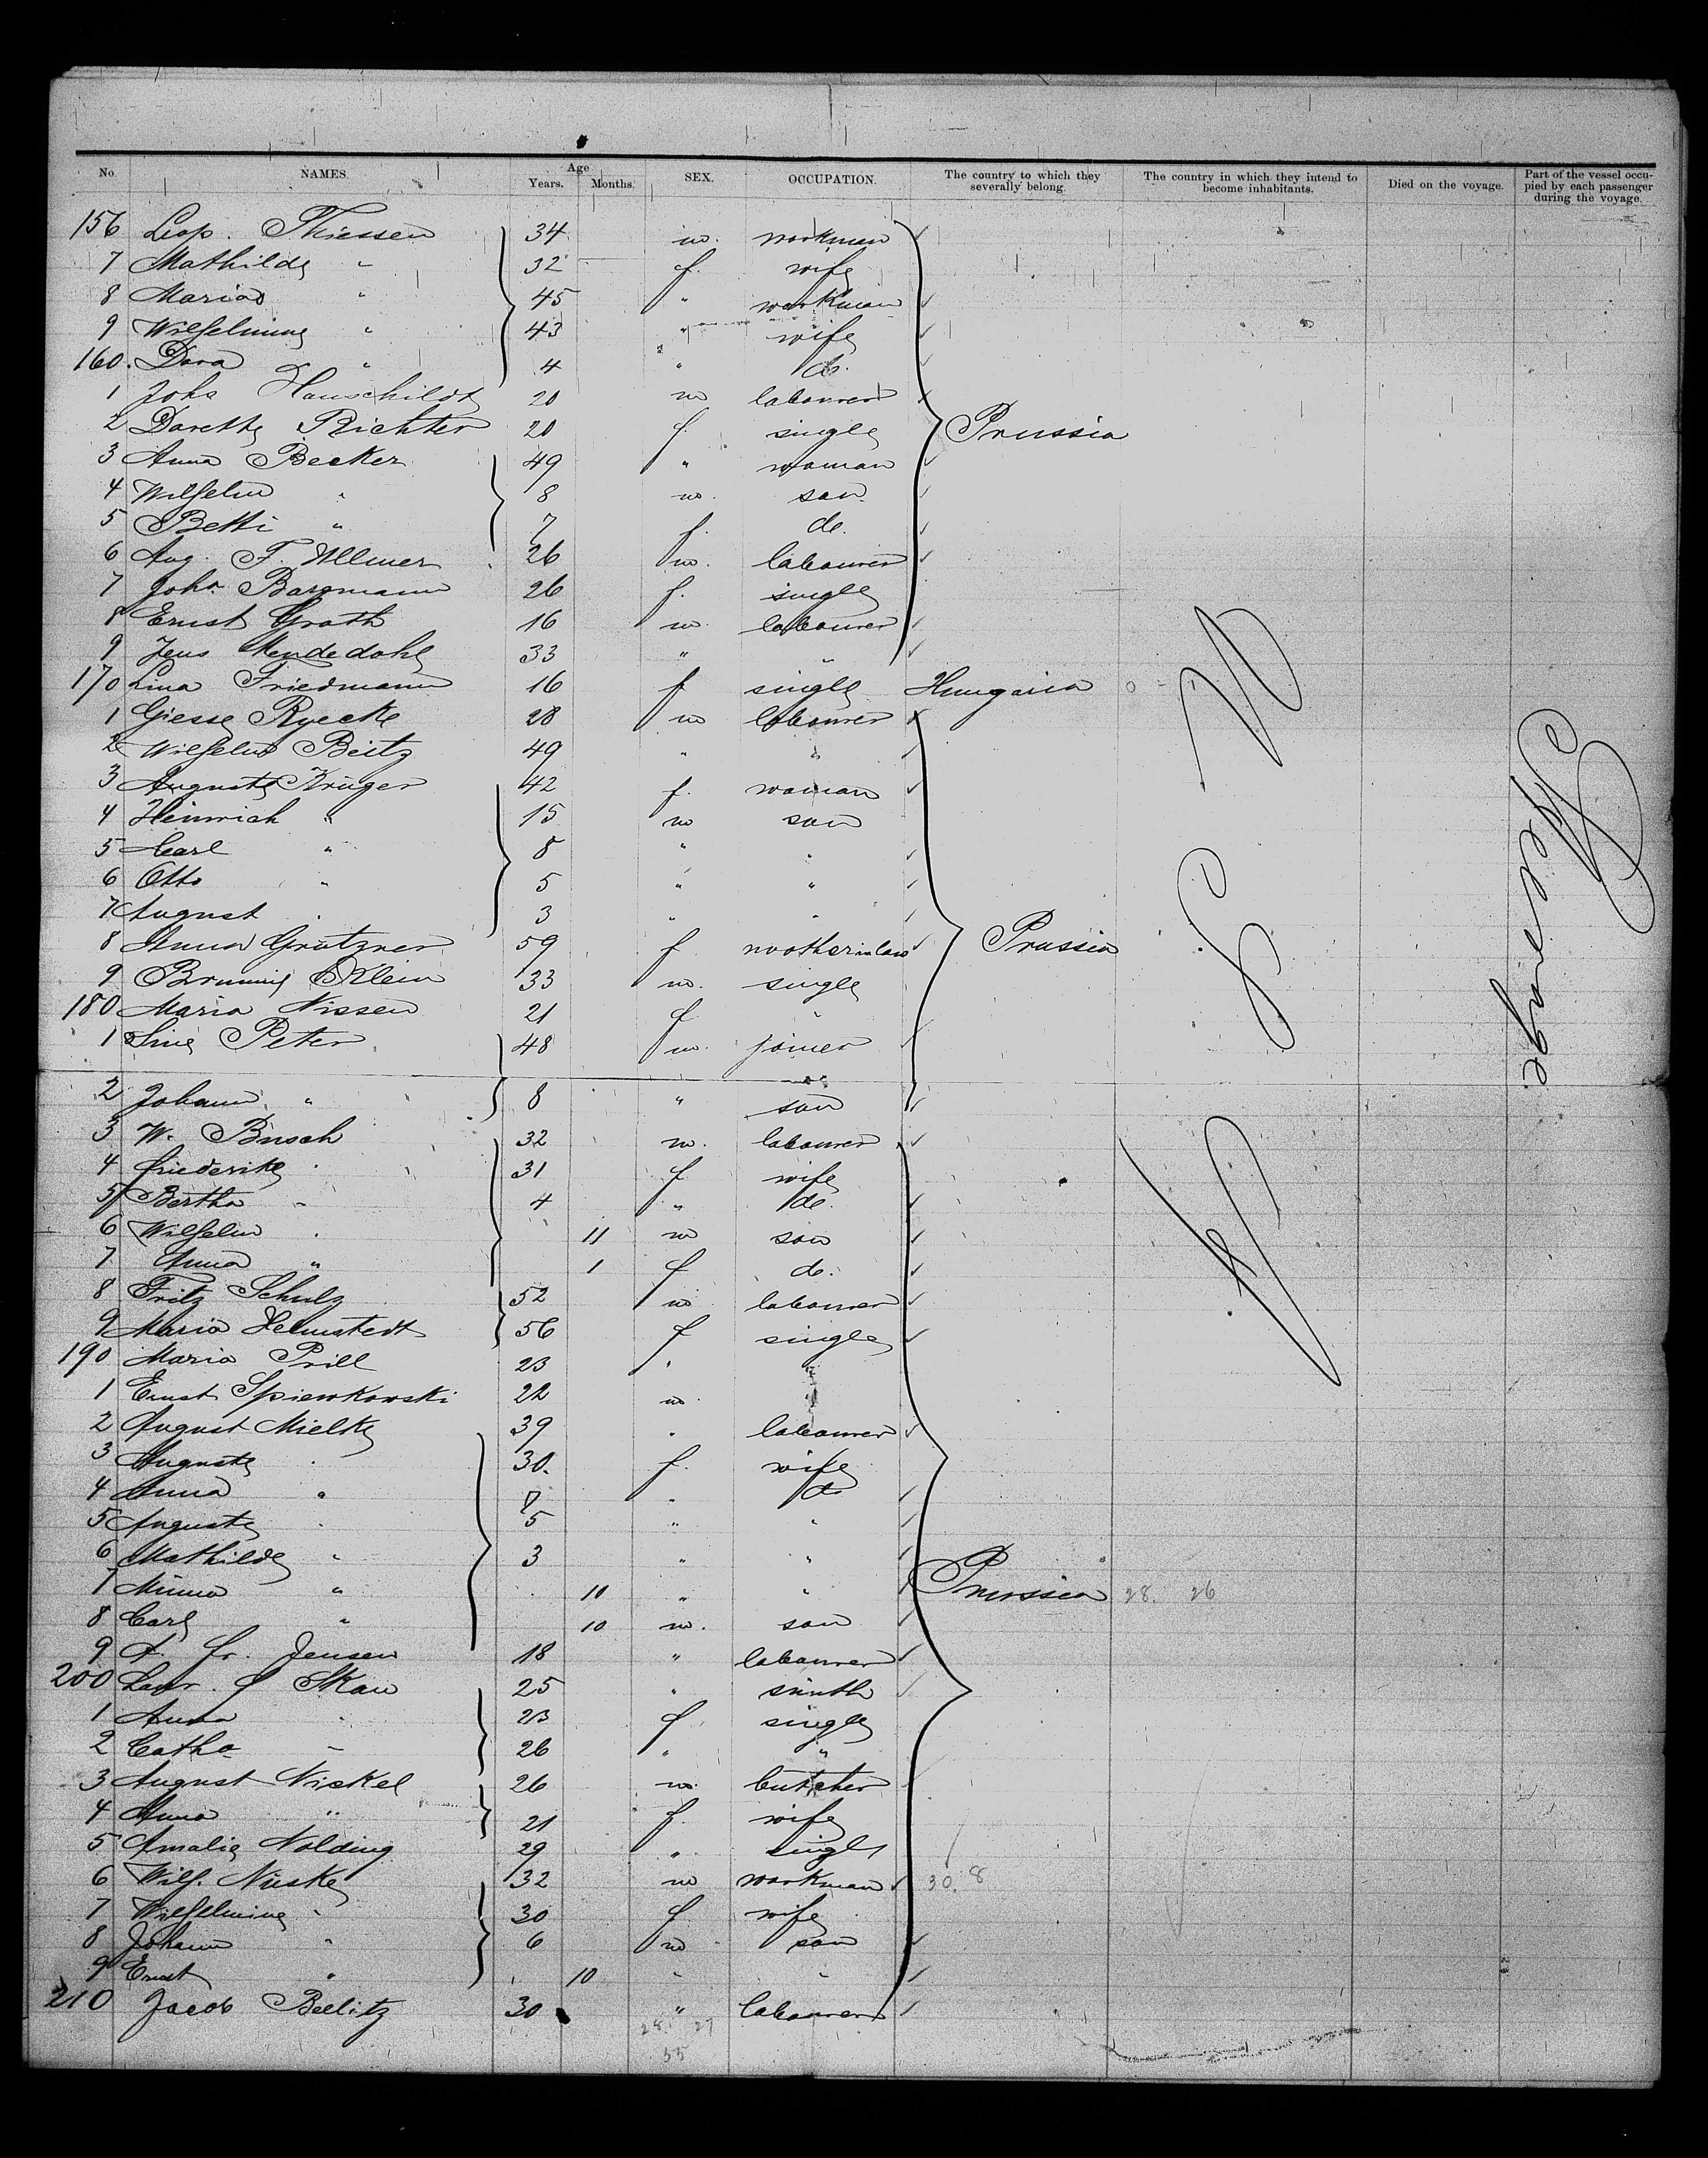 No. NAMES. Age Years. Months. SEX. OCCUPATION. The country to which they severally belong. The country in which they intend to become inhabitants. Died on the voyage. Part of the vessel occupied by each passenger during the voyage.
156 Leop. Thiessen 34 m. workman
7 Mathilde " 32 f. wife
8 Maria " 45 " workman
9 Wilhelmine " 43 " wife
160. Dora " 4 " do.
1 Johs Hauschildt 20 m labourer
2 Dorette Richter 20 f. single Prussia
3 Anna Becker 49 " woman
4 Wilhelm " 8 m. son
5 Betti " 7 f. do.
6 Aug. F. Allmer 26 m. labourer
7 Joha. Bargmann 26 f. single
8 Ernst Groth 16 m. labourer
9 Jens 33 " "
170 Lina Friedmann 16 f single Hungaria
1 Giesse Ryecke 28 m labourer
2 Wilhelm Beitz 49 " "
3 Auguste Krüger 42 f. woman
4 Heinrich " 15 m son
5 Carl " 8 " "
6 Otto " 5 " "
7 August " 3 " "
8 Anna Grützner 59 f motherinlaw Prussia
9 Klein 33 m. single
180 Maria Nissen 21 f "
1 Peter 48 m. joiner
2 Johann " 8 " son
3 W. Busch 32 m. labourer
4 Friederike " 31 f wife
5 Bertha " 4 " do.
6 Wilhelm " 11 m son
7 Anna " 1 f do.
8 Fritz Schulz 52 m labourer
9 Maria Helmstedt 56 f single
190 Maria Prill 23 " "
1 Ernst Spiewkowski 22 m. "
2 August Mielke 39 " labourer
3 Auguste " 30. f. wife
4 Anna " 7 " do
5 Auguste " 5 " "
6 Mathilde " 3 " "
7 Minna " 10 " " Prussia 28. 26
8 Carl " 10 m. son
9 A. Fr. Jensen 18 " labourer
200 Laur. J Skau 25 " smith
1 Anna " 23 f single
2 Catha " 26 " "
3 August Nickel 26 m. butcher
4 Anna " 21 f. wife
5 Amalie Nolding 29 " single
6 Wilh. Nüske 32 m workman 30. 8
7 Wilhelmine " 30 f wife
8 Johann " 6 m son
9 Ernst " 10 " "
210 Jacob Beelitz 30 " labourer
28. 27
55
U S A
Steerage